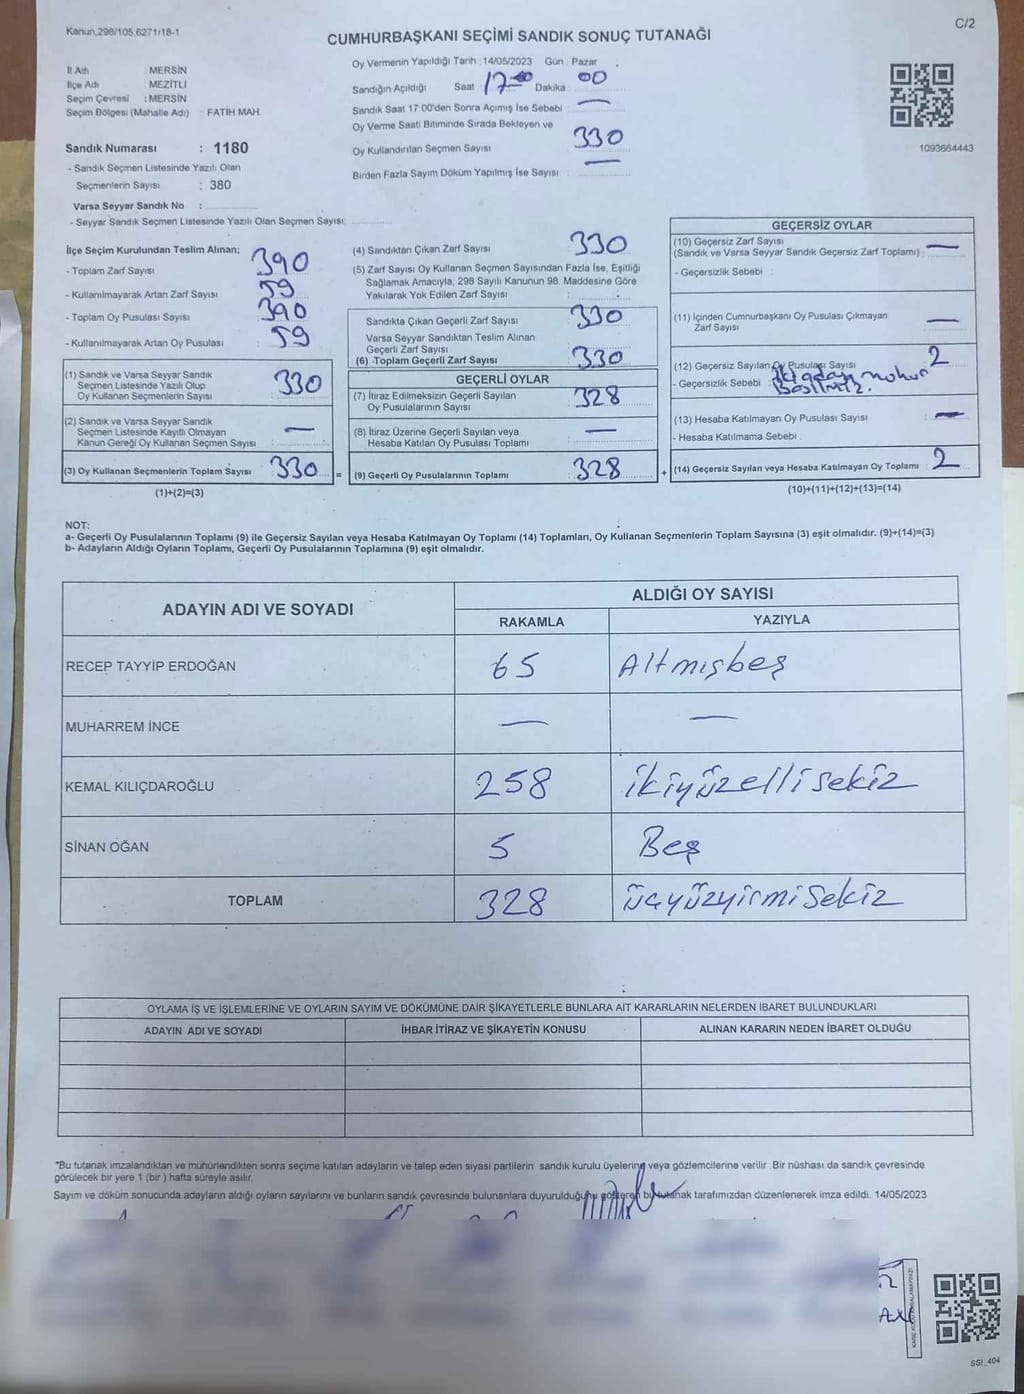 Kanun,298/105,6271/18-1
C/2
CUMHURBAŞKANI SEÇİMİ SANDIK SONUÇ TUTANAĞI
İl Adı : MERSİN
İlçe Adı : MEZİTLİ
Seçim Çevresi : MERSİN
Seçim Bölgesi (Mahalle Adı) : FATİH MAH.
Sandık Numarası : 1180
- Sandık Seçmen Listesinde Yazılı Olan
Seçmenlerin Sayısı : 380
Varsa Seyyar Sandık No :
- Seyyar Sandık Seçmen Listesinde Yazılı Olan Seçmen Sayısı:
Oy Vermenin Yapıldığı Tarih : 14/05/2023 Gün : Pazar
Sandığın Açıldığı Saat : 17 00 Dakika : 00
Sandık Saat 17:00'den Sonra Açımış İse Sebebi : —
Oy Verme Saati Bitiminde Sırada Bekleyen ve
Oy Kullandırılan Seçmen Sayısı : 330
Birden Fazla Sayım Döküm Yapılmış İse Sayısı : —
1093664443
İlçe Seçim Kurulundan Teslim Alınan;
- Toplam Zarf Sayısı : 390
- Kullanılmayarak Artan Zarf Sayısı : 59
- Toplam Oy Pusulası Sayısı : 390
- Kullanılmayarak Artan Oy Pusulası : 59
(1) Sandık ve Varsa Seyyar Sandık
Seçmen Listesinde Yazılı Olup
Oy Kullanan Seçmenlerin Sayısı : 330
(2) Sandık ve Varsa Seyyar Sandık
Seçmen Listesinde Kayıtlı Olmayan
Kanun Gereği Oy Kullanan Seçmen Sayısı : —
(3) Oy Kullanan Seçmenlerin Toplam Sayısı : 330 =
(1)+(2)=(3)
(4) Sandıktan Çıkan Zarf Sayısı : 330
(5) Zarf Sayısı Oy Kullanan Seçmen Sayısından Fazla İse, Eşitliği
Sağlamak Amacıyla, 298 Sayılı Kanunun 98. Maddesine Göre
Yakılarak Yok Edilen Zarf Sayısı :
Sandıkta Çıkan Geçerli Zarf Sayısı : 330
Varsa Seyyar Sandıktan Teslim Alınan
Geçerli Zarf Sayısı :
(6) -Toplam Geçerli Zarf Sayısı : 330
GEÇERLİ OYLAR
(7) İtiraz Edilmeksizin Geçerli Sayılan
Oy Pusulalarının Sayısı : 328
(8) İtiraz Üzerine Geçerli Sayılan veya
Hesaba Katılan Oy Pusulası Toplamı : —
(9) Geçerli Oy Pusulalarının Toplamı : 328 +
GEÇERSİZ OYLAR
(10) Geçersiz Zarf Sayısı
(Sandık ve Varsa Seyyar Sandık Geçersiz Zarf Toplamı) : —
- Geçersizlik Sebebi :
(11) İçinden Cumhurbaşkanı Oy Pusulası Çıkmayan
Zarf Sayısı : —
(12) Geçersiz Sayılan Oy Pusulası Sayısı : 2
- Geçersizlik Sebebi : iki adaya mühür
Basılmış.
(13) Hesaba Katılmayan Oy Pusulası Sayısı : —
- Hesaba Katılmama Sebebi :
(14) Geçersiz Sayılan veya Hesaba Katılmayan Oy Toplamı : 2
(10)+(11)+(12)+(13)=(14)
NOT:
a- Geçerli Oy Pusulalarının Toplamı (9) ile Geçersiz Sayılan veya Hesaba Katılmayan Oy Toplamı (14) Toplamları, Oy Kullanan Seçmenlerin Toplam Sayısına (3) eşit olmalıdır. (9)+(14)=(3)
b- Adayların Aldığı Oyların Toplamı, Geçerli Oy Pusulalarının Toplamına (9) eşit olmalıdır.
ADAYIN ADI VE SOYADI
ALDIĞI OY SAYISI
RAKAMLA YAZIYLA
RECEP TAYYİP ERDOĞAN 65 Altmışbeş
MUHARREM İNCE — —
KEMAL KILIÇDAROĞLU 258 ikiyüzellisekiz
SİNAN OĞAN 5 Beş
TOPLAM 328 üçyüzyirmisekiz
OYLAMA İŞ VE İŞLEMLERİNE VE OYLARIN SAYIM VE DÖKÜMÜNE DAİR ŞİKAYETLERLE BUNLARA AİT KARARLARIN NELERDEN İBARET BULUNDUKLARI
ADAYIN ADI VE SOYADI İHBAR İTİRAZ VE ŞİKAYETİN KONUSU ALINAN KARARIN NEDEN İBARET OLDUĞU
*Bu tutanak imzalandıktan ve mühürlendikten sonra seçime katılan adayların ve talep eden siyasi partilerin sandık kurulu üyelerine veya gözlemcilerine verilir .Bir nüshası da sandık çevresinde
görülecek bir yere 1 (bir ) hafta süreyle asılır.
Sayım ve döküm sonucunda adayların aldığı oyların sayılarını ve bunların sandık çevresinde bulunanlara duyurulduğunu gösteren bu tutanak tarafımızdan düzenlenerek imza edildi. 14/05/2023
SSI_404